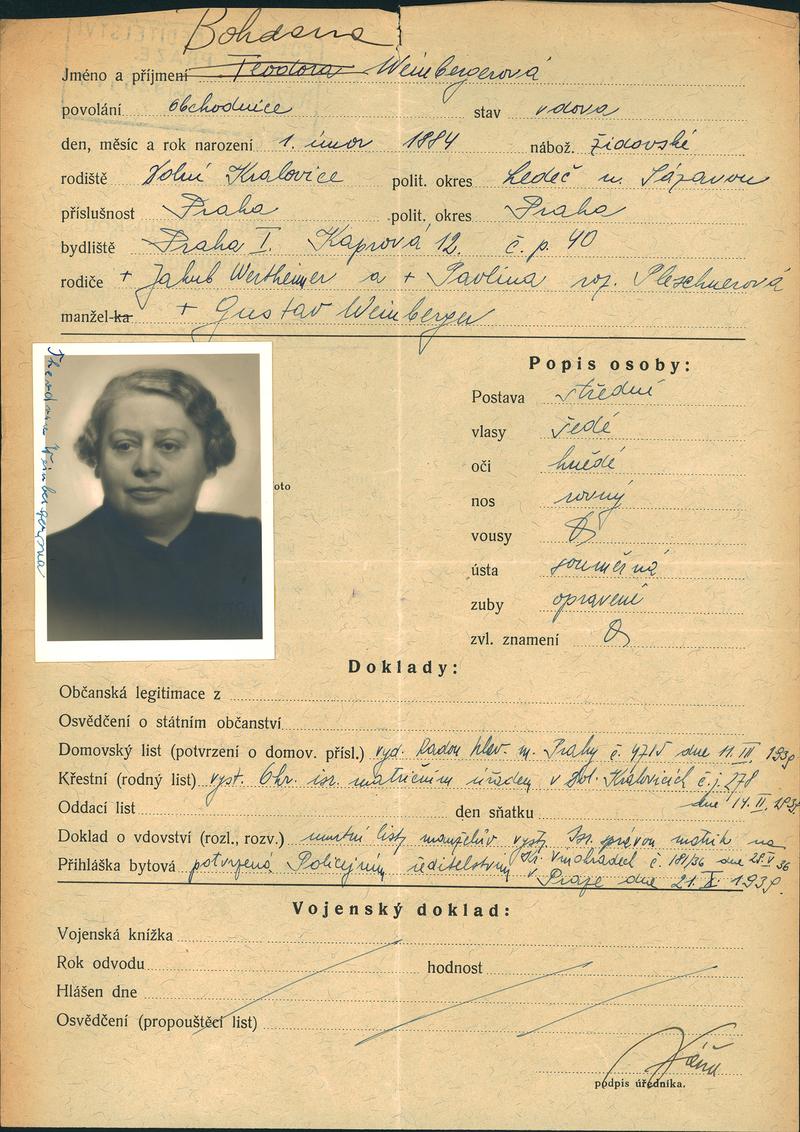 Bohdana
Jméno a příjmení Teodora Weinbergerová
povolání obchodnice stav vdova
den, měsíc a rok narození 1. únor 1884 nábož. židovské
rodiště Dolní Kralovice polit. okres Ledeč n. Sázavou
příslušnost Praha polit. okres Praha
bydliště Praha I. Kaprová 12. č. p. 40
rodiče + Jakub Wertheimer a + Pavlína roz. Pleschnerová
manžel-ka + Gustav Weinberger
Popis osoby:
Postava střední
vlasy šedé
oči hnědé
nos rovný
vousy
ústa souměrná
zuby opravené
zvl. znamení
oto
Doklady:
Občanská legitimace z
Osvědčení o státním občanství
Domovský list (potvrzení o domov. přísl.) vyd. Radou hlav. m. Prahy č. 4715 dne 11. III. 1939
Křestní (rodný list) vyst. isr. matričním úřadem v Dol. Kralovicích č.j. 278
Oddací list den sňatku dne 14. II. 1939
Doklad o vdovství (rozl., rozv.) úmrtní listy manželův vyst. Isr. správou matrik na
Kr. Vinohradech č. 181/36 dne 28. V. 36
Přihláška bytová potvrzená Policejním ředitelstvím v Praze dne 21. X. 1939.
Vojenský doklad:
Vojenská knížka
Rok odvodu hodnost
Hlášen dne
Osvědčení (propouštěcí list)
podpis úředníka.